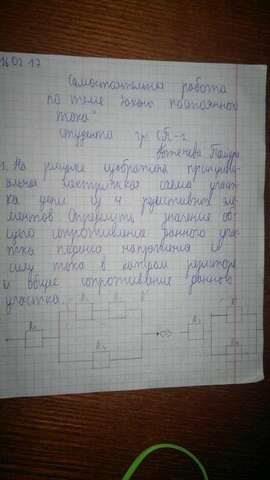 16.02.17
Самостоятельная работа
по теме "Закон постоянного
тока"
студента гр.
1. На рисунке изображена принципи-
альная электрическая схема участ-
ка цепи из 4 резистивных эле-
ментов Определить значение об-
щего сопротивления данного учас-
тка падение напряжения и
силу тока в котором резисторе
и общее сопротивление данного
участка
R₁